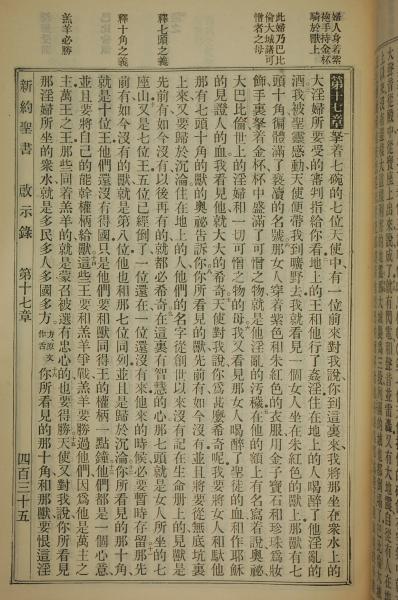 婦人身着紫
袍手持金杯
騎於獸上
此婦乃巴比
倫大城諸可
憎者之母
釋七頭之義
釋十角之義
羔羊必勝
第十七章拏着七碗的七位天使中有一位前來對我說你到這裏來我將那坐在衆水上的
大淫婦所要受的審判指給你看地上的王和他行了姦淫住在地上的人喝醉了他淫亂的
酒我被聖靈感動天使便帶我到曠野去我就看見一個女人坐在朱紅色的獸上那獸有七
頭十角徧體滿了褻瀆的名號那女人穿着紫色和朱紅色的衣服用金子寶石和珍珠爲妝
飾手裏拏着金杯杯中盛滿了可憎之物就是他淫亂的汚穢在他的額上有名寫着說奧祕
大巴比倫世上的淫婦和一切可憎之物的母我又看見那女人喝醉了聖徒的血和作耶穌
的見證人的血我看見他就大大的希奇天使對我說你爲甚麼希奇呢我要將女人和馱他
那有七頭十角的獸的奧祕告訴你你所看見的獸前有如今沒有並且將要從無底坑裏
上來又要歸於沉淪住在地上的人他們的名字從創世以來沒有記在生命册上的見獸是
先前有如今沒有以後再有的就都必希奇在這裏有智慧的心那七頭就是女人所坐的七
座山又是七位王五位已經倒了一位還在一位還沒有來他來的時候必要暫時存留那先
前有如今沒有的獸就是第八位他也和那七位同列並且是歸於沉淪你所看見的那十角
就是十位王他們還沒有得國只是他們要和獸同得王的權柄一點鐘他們都是一個心意
並且要將自己的能幹權柄給獸這些王要和羔羊爭戰羔羊要勝過他們因爲他是萬主之
主萬王之王那些同着羔羊的就是蒙召被選有忠心的也要得勝天使又對我說你所看見
那淫婦所坐的衆水就是多民多人多國多方方原文作舌你所看見的那十角和那獸要恨這淫
新約聖書 啟示錄 第十七章 四百三十五